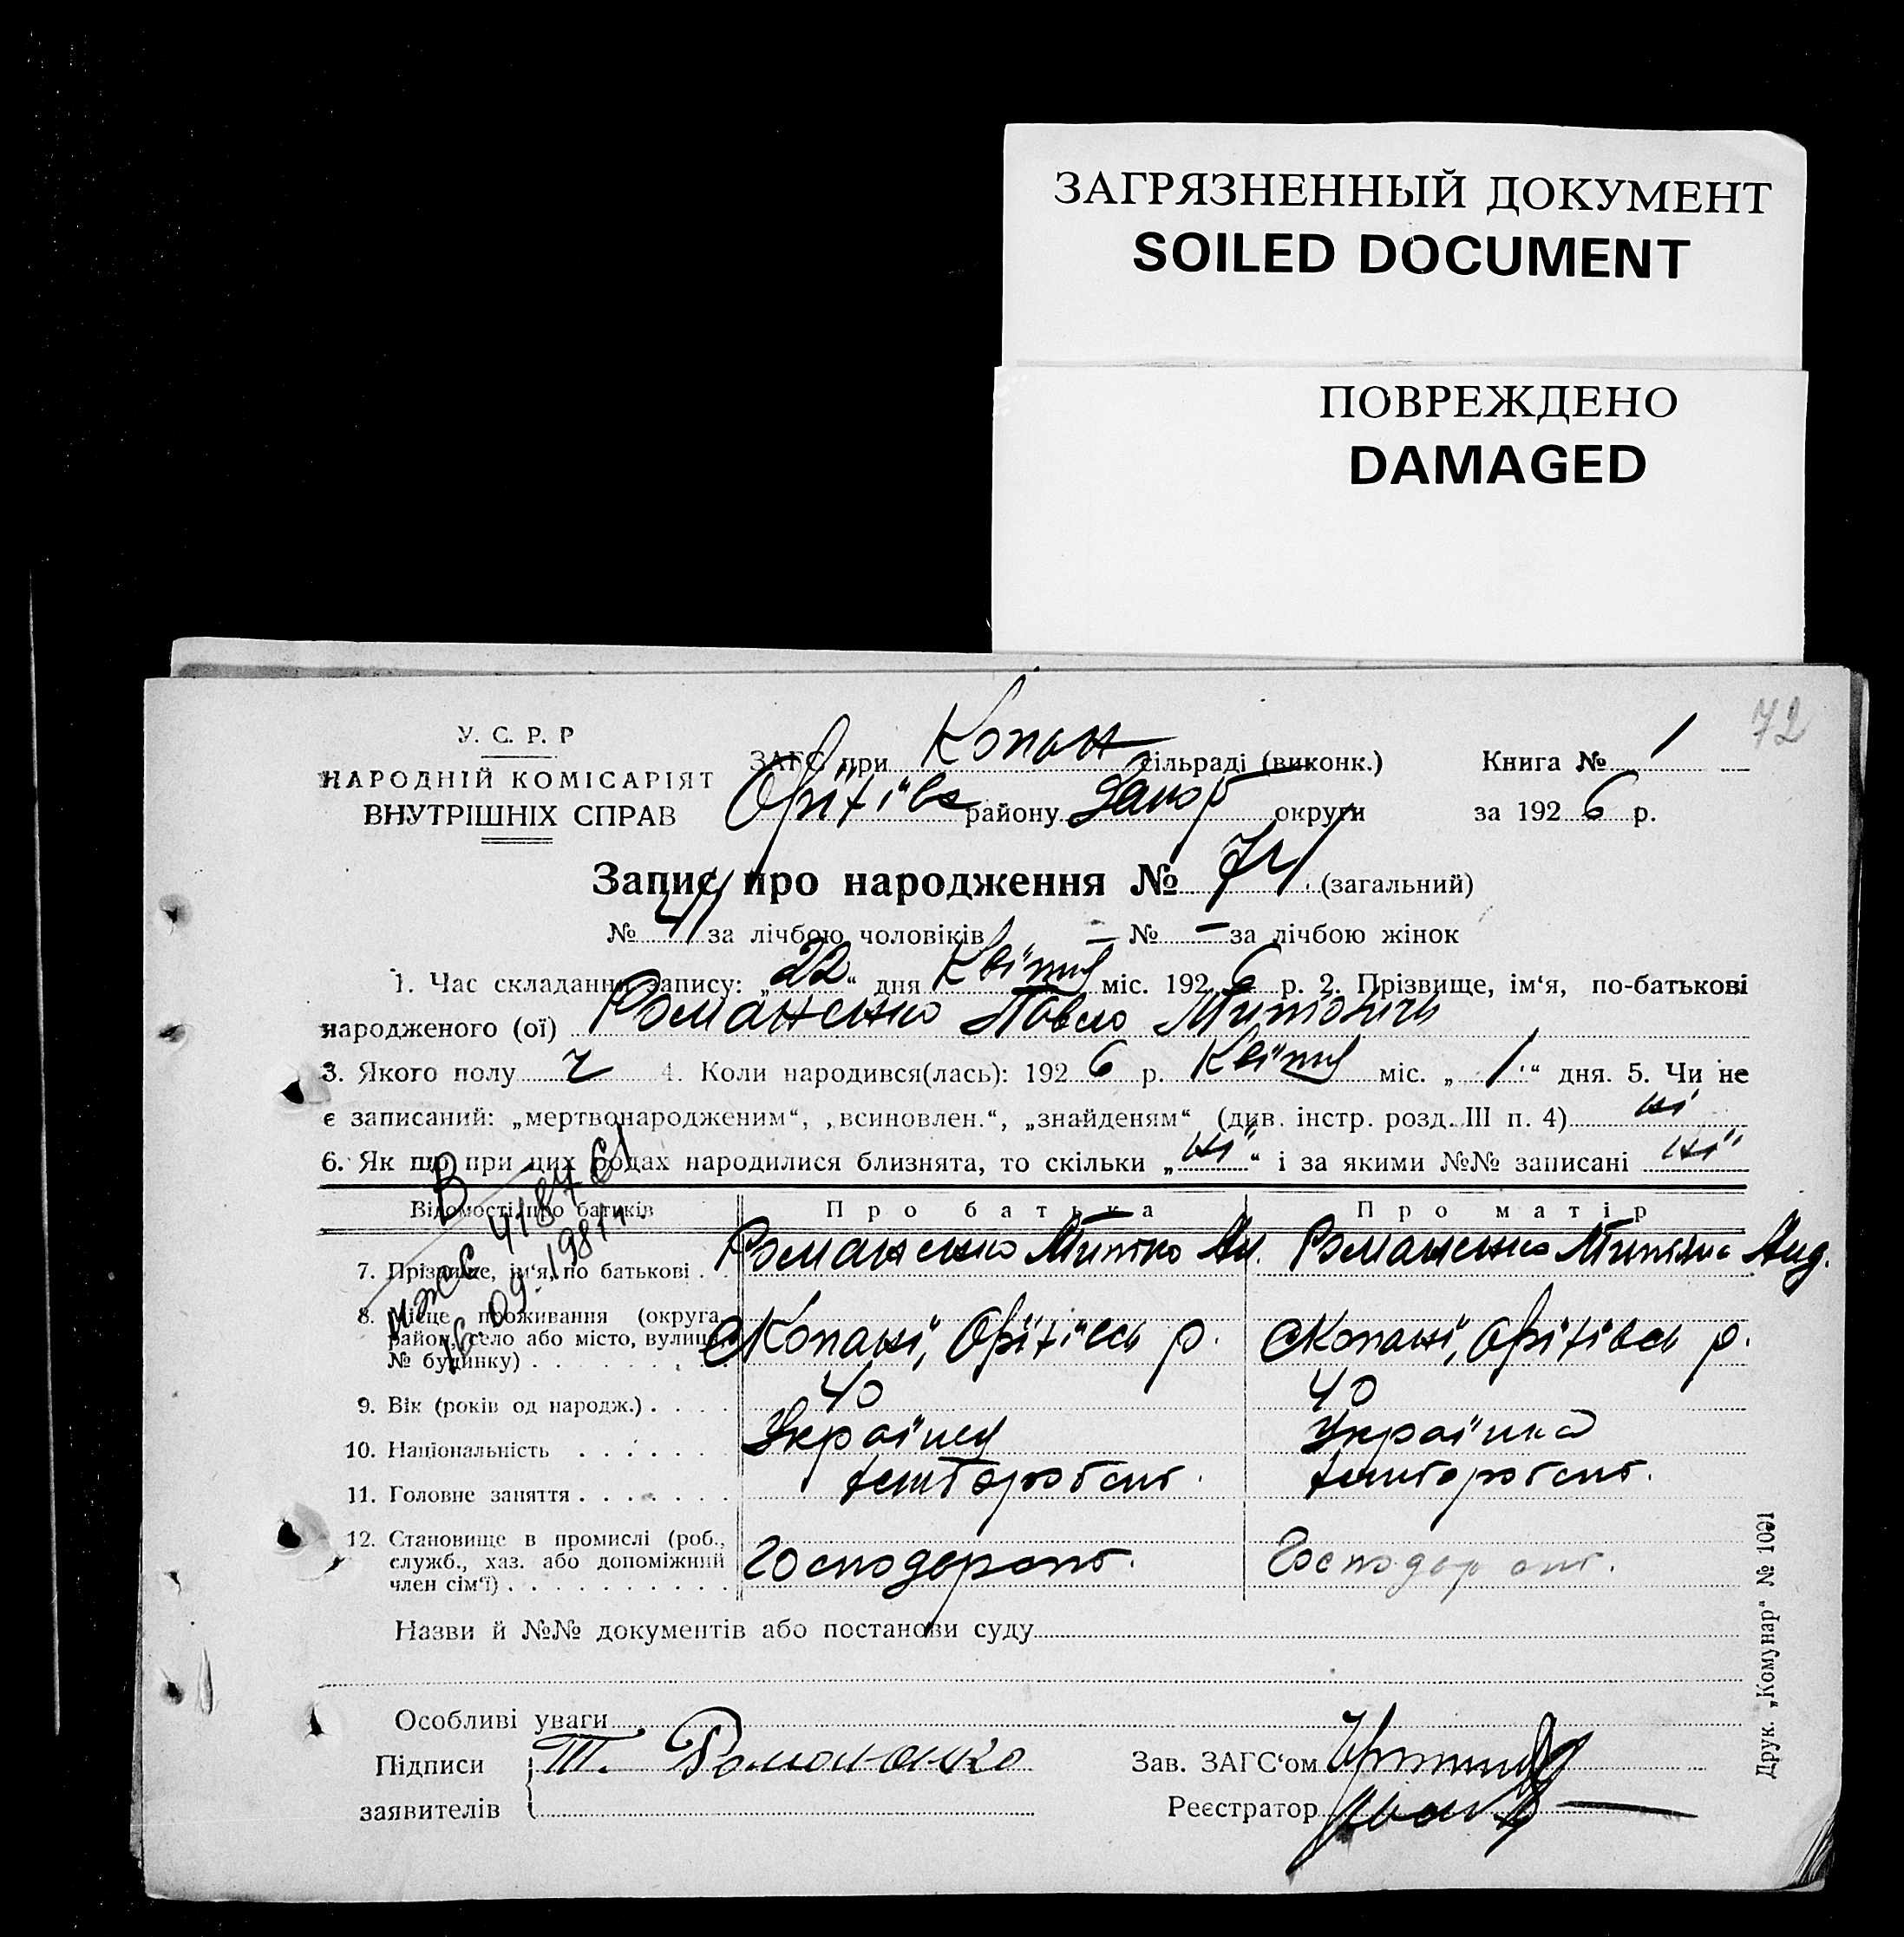 ЗАГРЯЗНЕННЫЙ ДОКУМЕНТ
SOILED DOCUMENT
ПОВРЕЖДЕНО
DAMAGED
72
У. С. Р. Р
НАРОДНІЙ КОМІСАРІЯТ
ВНУТРІШНІХ СПРАВ
ЗАГС при Копан сільраді (виконк.) Книга № 1
Оріхівс району Запор округи за 1926 р.
Запис про народження № 74 (загальний)
№ 41 за лічбою чоловіків — № — за лічбою жінок
1. Час складання запису: „22“ дня Квітня міс. 1926 р. 2. Прізвище, ім‘я, по-батькові
народженого (ої) Романенко Павло Титович
3. Якого полу ч 4. Коли народився(лась): 1926 р. Квітня міс. „1“ дня. 5. Чи не
є записаний: „мертвонародженим“, „всиновлен.“, „знайденям“ (див. інстр. розд. III п. 4) ні
6. Як що при цих родах народилися близнята, то скільки „ні“ і за якими №№ записані ні
Відомості про батьків Про батька Про матір
7. Прізвище, ім‘я, по батькові . . Романенко Тит Романенко Анд.
8. Місце проживання (округа,
район, село або місто, вулиця,
№ будинку) . . . . . . . . Копані, Оріхівсь р. Копані, Оріхівсь р.
9. Вік (років од народж.) . . . . 40 40
10. Національність . . . . . . Українец Українка
11. Головне заняття . . . . . . . хлібороб хлібороб
12. Становище в промислі (роб.,
служб., хаз. або допоміжний
член сім‘ї) . . . . . . . . . . Господар Господар
В 418761
16.09.1981
Назви й №№ документів або постанови суду
Особливі уваги
Підписи Т. Романенко Зав. ЗАГС‘ом
заявителів Реєстратор
Друк. „Комунар“ № 1001